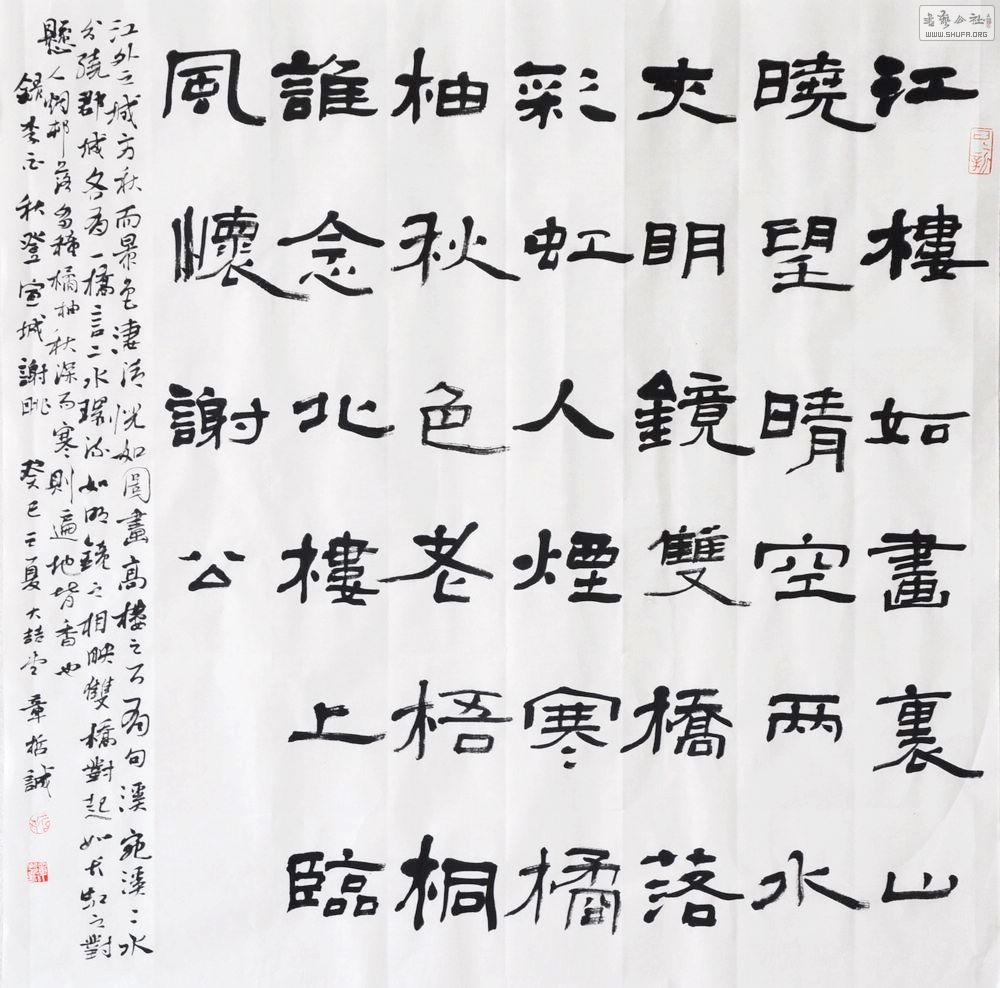 江樓如畫裏山
曉望晴空兩水
夾明鏡雙橋落
彩虹人煙寒橘
柚秋色老梧桐
誰念北樓上臨
風懷謝公
江外之城方秋而景色淒清恍如圖畫高樓之下有句溪宛溪二水
分繞郡城各為一橋言二水環流如明鏡之相映雙橋對起如長虹之對
懸人烟邨落多種橘柚秋深而寒則遍地皆香也
錄李白秋登宣城謝朓 癸巳之夏大喆堂章哲誠
書藝公社
WWW.SHUFA.ORG